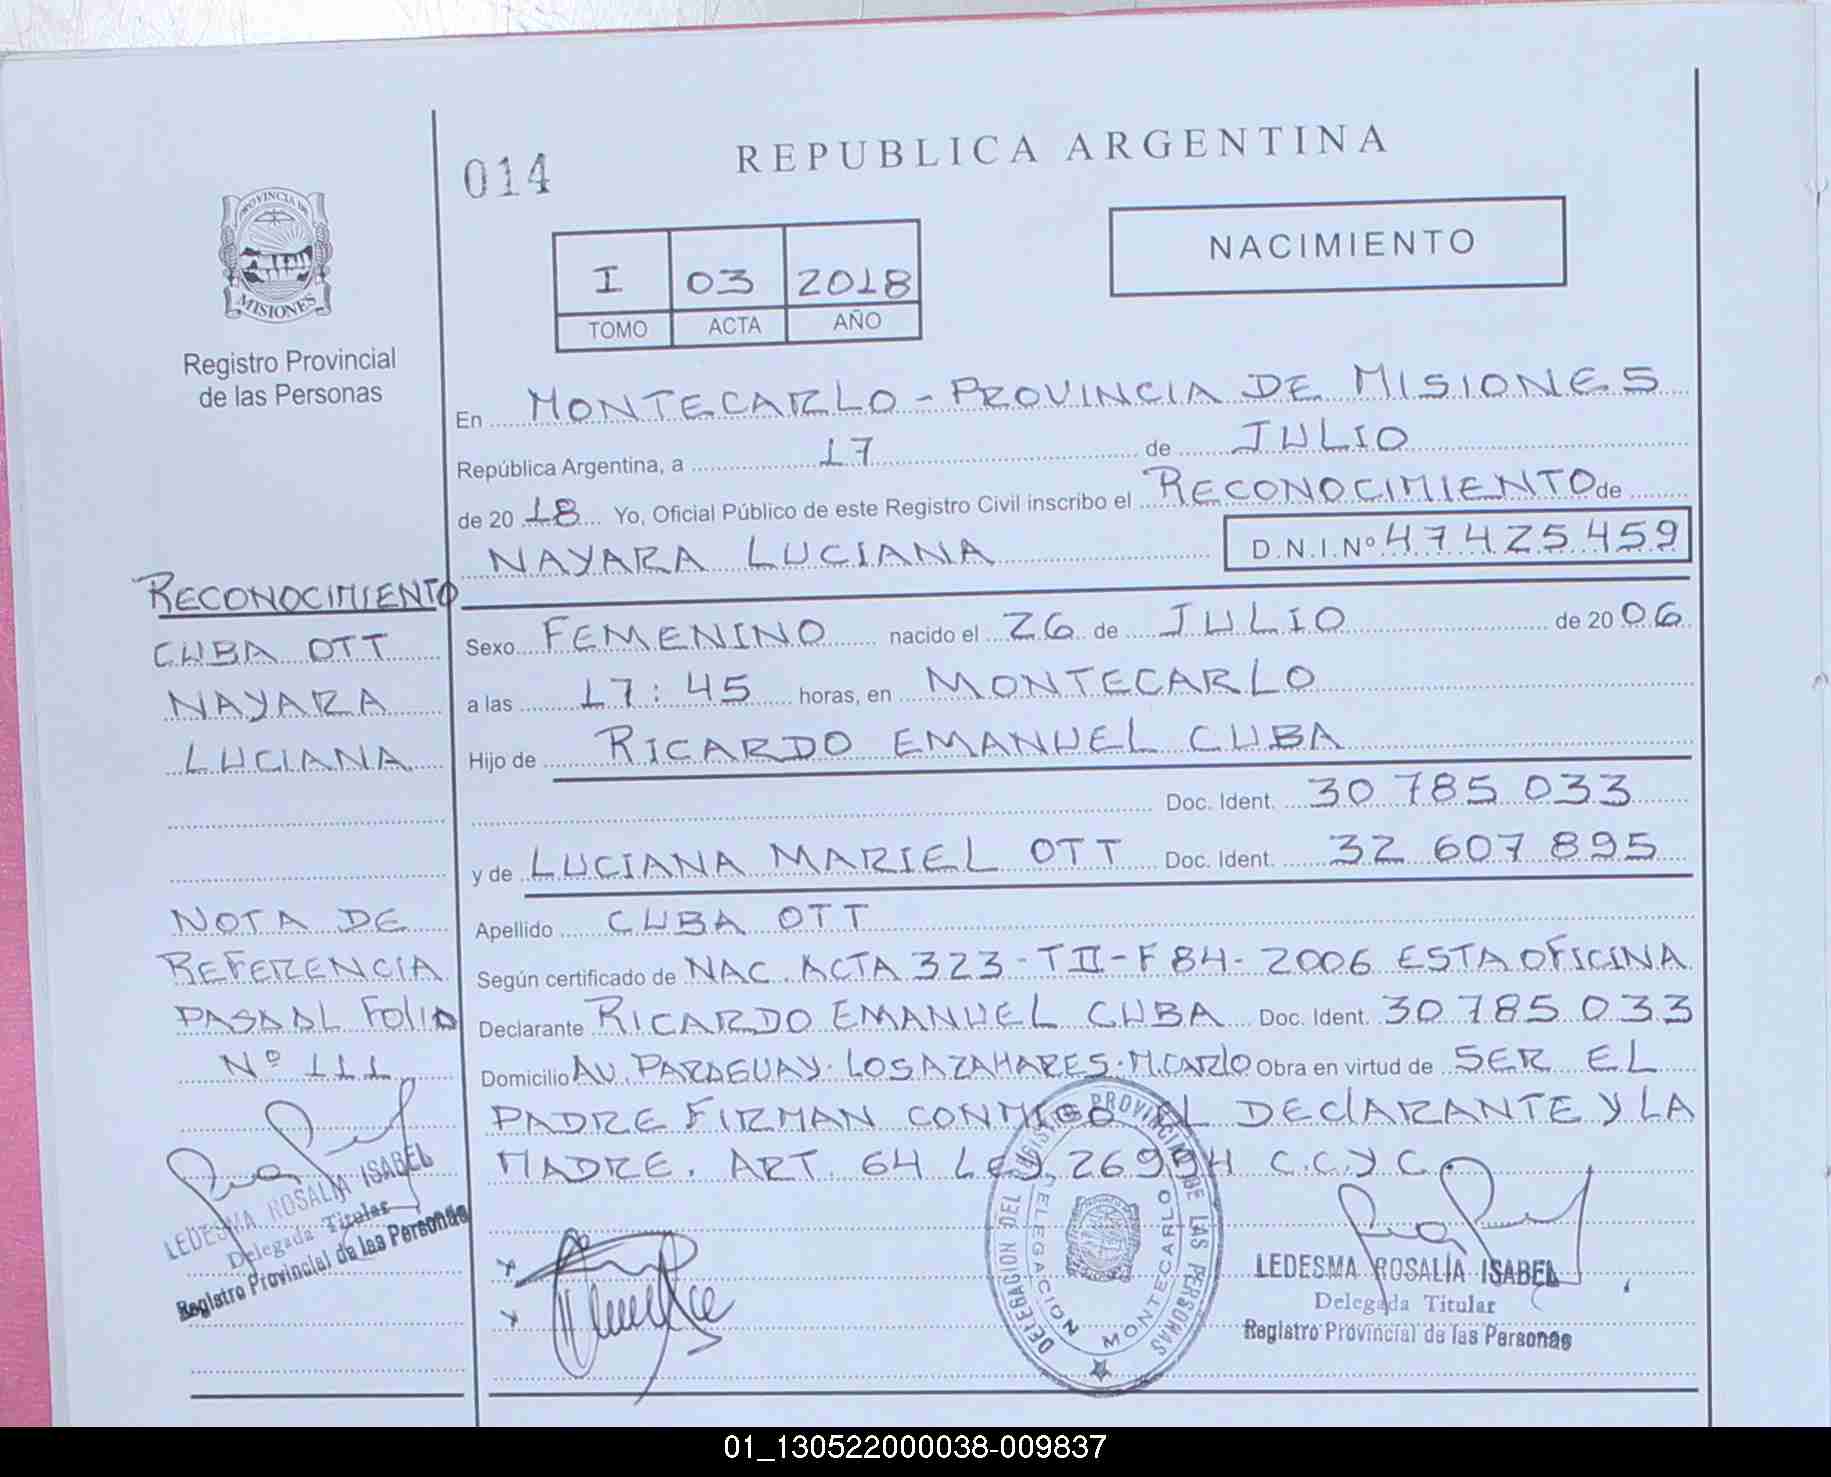 014
REPUBLICA ARGENTINA
PROVINCIA DE
MISIONES
Registro Provincial
de las Personas
I 03 2018
TOMO ACTA AÑO
NACIMIENTO
En MONTECARLO - PROVINCIA DE MISIONES
República Argentina, a 17 de JULIO
de 2018 Yo, Oficial Público de este Registro Civil inscribo el RECONOCIMIENTO de
NAYARA LUCIANA D.N.I.Nº 47425459
Sexo FEMENINO nacido el 26 de JULIO de 2006
a las 17:45 horas, en MONTECARLO
Hijo de RICARDO EMANUEL CUBA
Doc. Ident. 30 785 033
y de LUCIANA MARIEL OTT Doc. Ident. 32 607 895
Apellido CUBA OTT
Según certificado de NAC. ACTA 323-TII-F84-2006 ESTA OFICINA
Declarante RICARDO EMANUEL CUBA Doc. Ident. 30 785 033
Domicilio AV. PARAGUAY. LOS AZAHARES. M.CARLO Obra en virtud de SER EL
PADRE FIRMAN CONMIGO EL DECLARANTE Y LA
MADRE. ART. 64 LEY. 26994 C.C.Y C.
RECONOCIMIENTO
CUBA OTT
NAYARA
LUCIANA
NOTA DE
REFERENCIA
PASA AL FOLIO
Nº 111
LEDESMA ROSALIA ISABEL
Delegada Titular
Registro Provincial de las Personas
DELEGACION DEL REGISTRO PROVINCIAL DE LAS PERSONAS
DELEGACION MONTECARLO
LEDESMA ROSALÍA ISABEL
Delegada Titular
Registro Provincial de las Personas
01_130522000038-009837